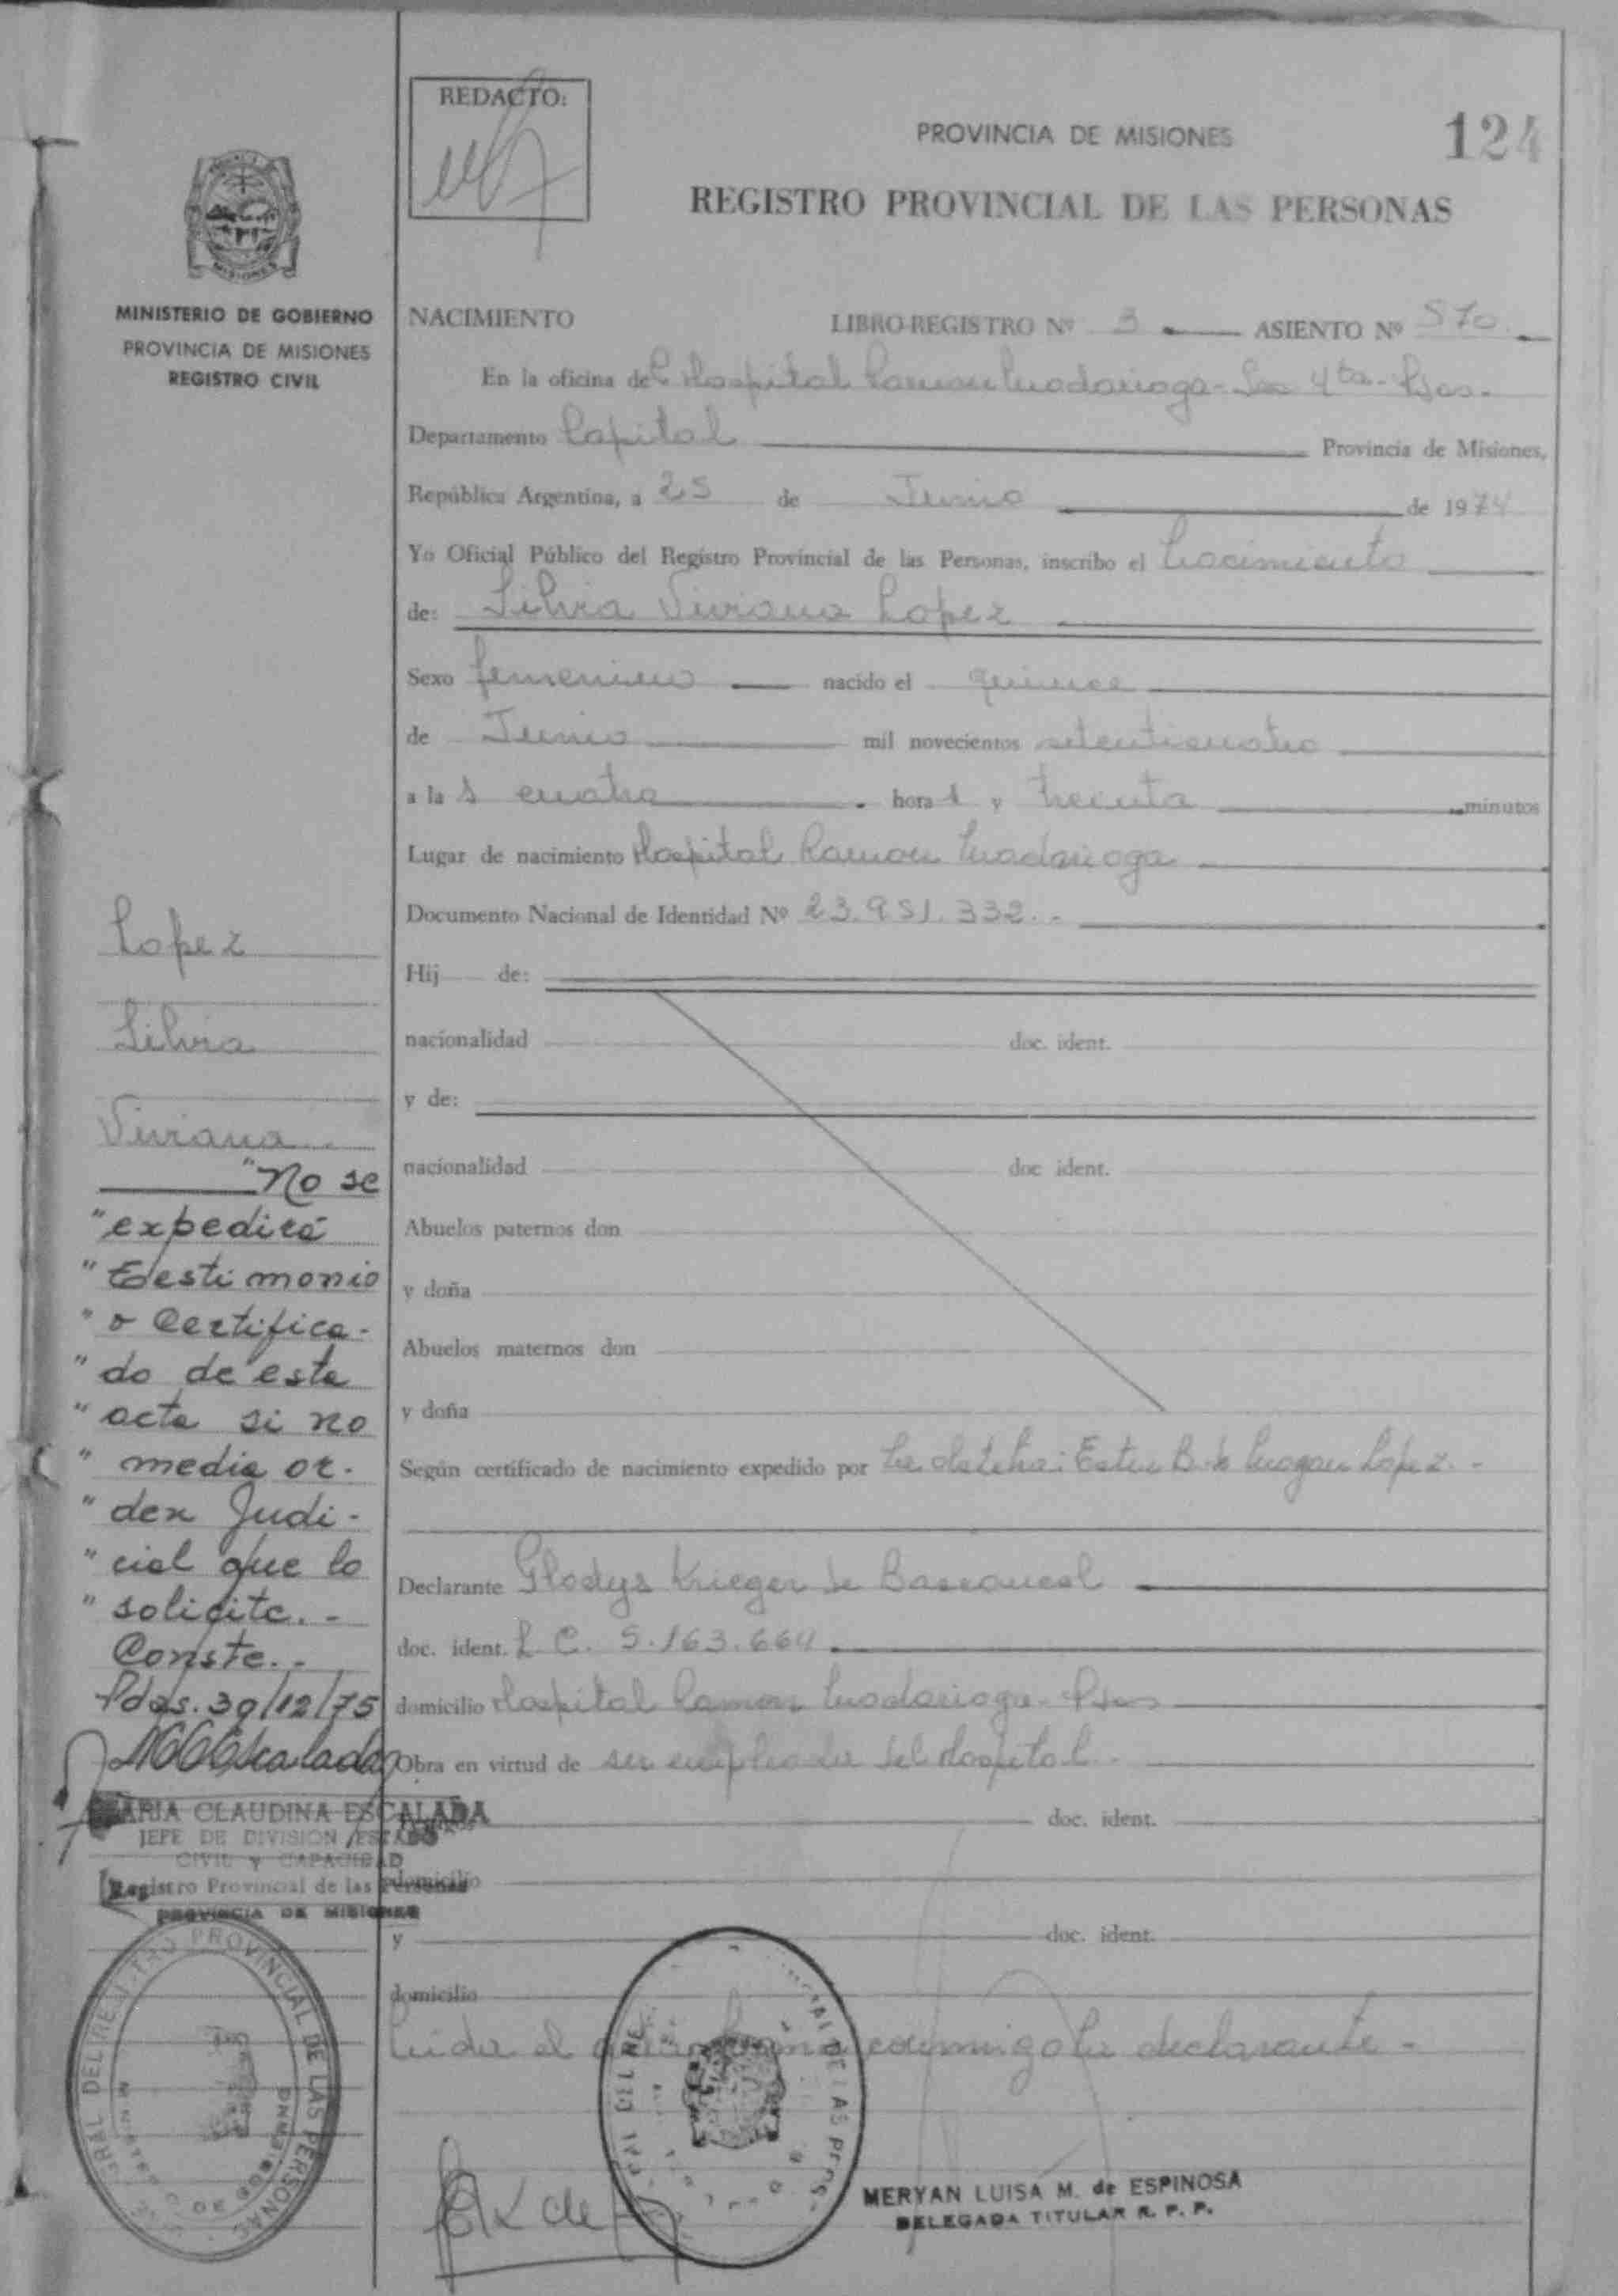 REDACTO:
PROVINCIA DE MISIONES
124
REGISTRO PROVINCIAL DE LAS PERSONAS
MISIONES
MINISTERIO DE GOBIERNO
PROVINCIA DE MISIONES
REGISTRO CIVIL
NACIMIENTO LIBRO-REGISTRO Nº 3 ASIENTO Nº 570
En la oficina del Hospital Ramon Madariaga - Sec 4ta - Pdas.
Departamento Capital Provincia de Misiones,
República Argentina, a 25 de Junio de 1974
Yo Oficial Público del Registro Provincial de las Personas, inscribo el Nacimiento
de: Silvia Viviana Lopez
Sexo femenino nacido el quince
de Junio mil novecientos setenticuatro
a la s cuatro hora s y treinta minutos
Lugar de nacimiento Hospital Ramon Madariaga
Documento Nacional de Identidad Nº 23.951.332.-
Hij de:
nacionalidad doc. ident.
y de:
nacionalidad doc ident.
Abuelos paternos don
y doña
Abuelos maternos don
y doña
Según certificado de nacimiento expedido por La obstetra: Ester B. de Lopez.-
Declarante Gladys Krieger de
doc. ident. L C. 5.163.664.
domicilio Hospital Ramon Madariaga - Pdas
Obra en virtud de ser empleada del Hospital.-
doc. ident.
domicilio
y doc. ident.
domicilio
Leida el acta firma conmigo la declarante -
MERYAN LUISA M. de ESPINOSA
DELEGADA TITULAR R. P. P.
Lopez
Silvia
Viviana
"No se
"expedirá
"Testimonio
"o Certifica-
"do de esta
"acta si no
"media or-
"den Judi-
"cial que lo
"solicite.-
Conste.-
Pdas. 30/12/75
MARIA CLAUDINA ESCALADA
JEFE DE DIVISION ESTADO
CIVIL Y CAPACIDAD
Registro Provincial de las Personas
PROVINCIA DE MISIONES